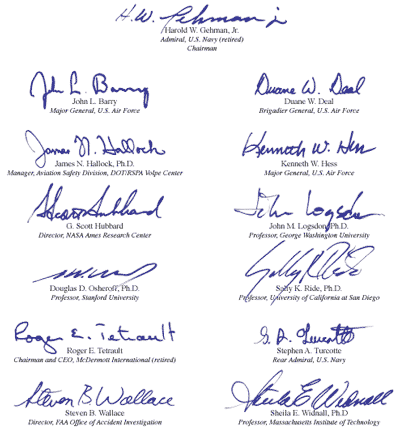 H.W. Gehman Jr
Harold W. Gehman, Jr.
Admiral, U.S. Navy (retired)
Chairman
John L. Barry
John L. Barry
Major General, U.S. Air Force
Duane W. Deal
Duane W. Deal
Brigadier General, U.S. Air Force
James N. Hallock
James N. Hallock, Ph.D.
Manager, Aviation Safety Division, DOT/RSPA Volpe Center
Kenneth W. Hess
Kenneth W. Hess
Major General, U.S. Air Force
G. Scott Hubbard
Director, NASA Ames Research Center
John Logsdon
John M. Logsdon, Ph.D.
Professor, George Washington University
Douglas D. Osheroff, Ph.D.
Professor, Stanford University
Sally K. Ride
Sally K. Ride, Ph.D.
Professor, University of California at San Diego
Roger E. Tetrault
Roger E. Tetrault
Chairman and CEO, McDermott International (retired)
S. A. Turcotte
Stephen A. Turcotte
Rear Admiral, U.S. Navy
Steven B. Wallace
Steven B. Wallace
Director, FAA Office of Accident Investigation
Sheila E Widnall
Sheila E. Widnall, Ph.D
Professor, Massachusetts Institute of Technology